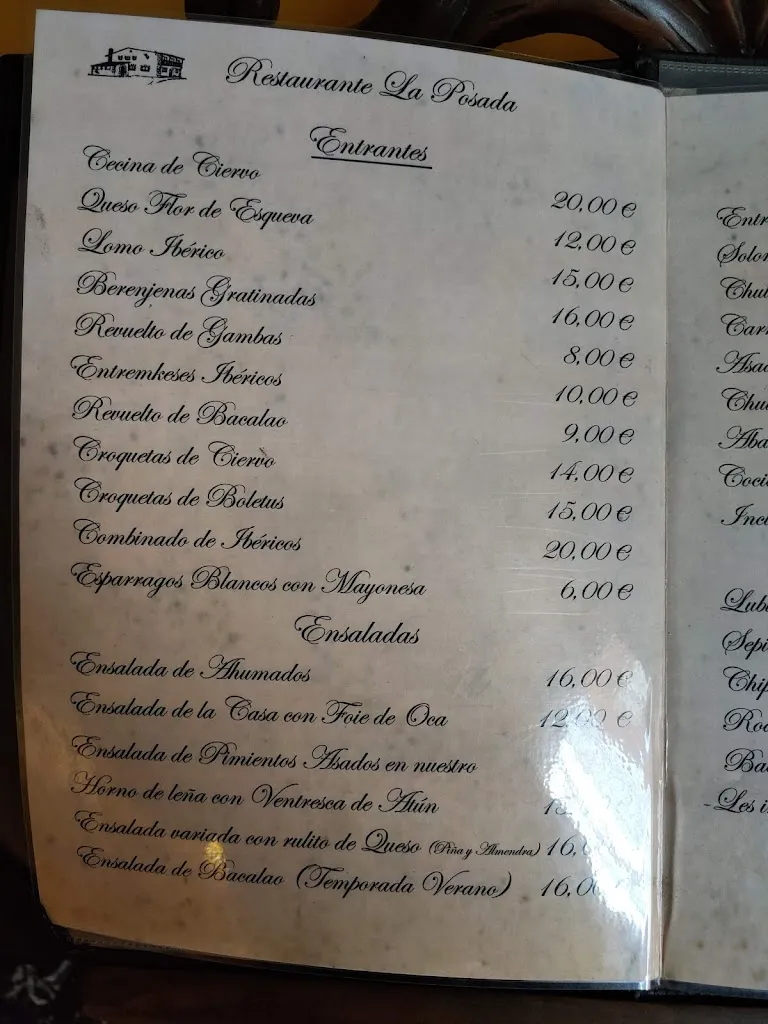 Restaurante La Posada
Entrantes
Cecina de Ciervo 20,00 €
Queso Flor de Esqueva 12,00 €
Lomo Ibérico 15,00 €
Berenjenas Gratinadas 16,00 €
Revuelto de Gambas 8,00 €
Entremkeses Ibéricos 10,00 €
Revuelto de Bacalao 9,00 €
Croquetas de Ciervo 14,00 €
Croquetas de Boletus 15,00 €
Combinado de Ibéricos 20,00 €
Esparragos Blancos con Mayonesa 6,00 €
Ensaladas
Ensalada de Ahumados 16,00 €
Ensalada de la Casa con Foie de Oca 12,00 €
Ensalada de Pimientos Asados en nuestro
Horno de leña con Ventresca de Atún
Ensalada variada con rulito de Queso (Piña y Almendra)
Ensalada de Bacalao (Temporada Verano)